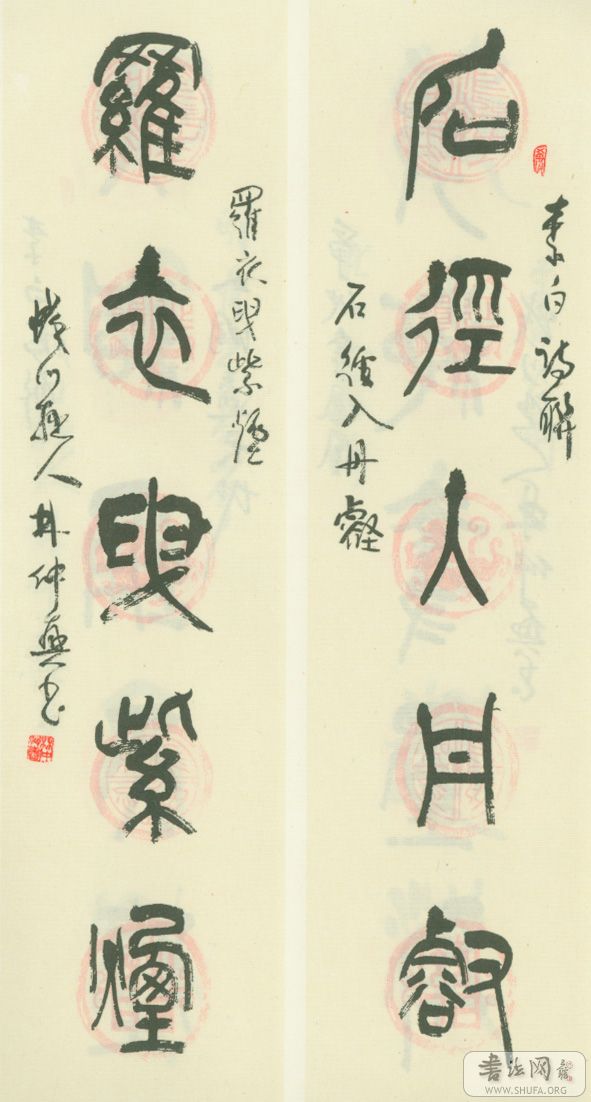 李白詩聯
石徑入丹壑
石徑入丹壑
羅衣曳紫煙
羅衣曳紫煙
人林仲興書
書法网
WWW.SHUFA.ORG